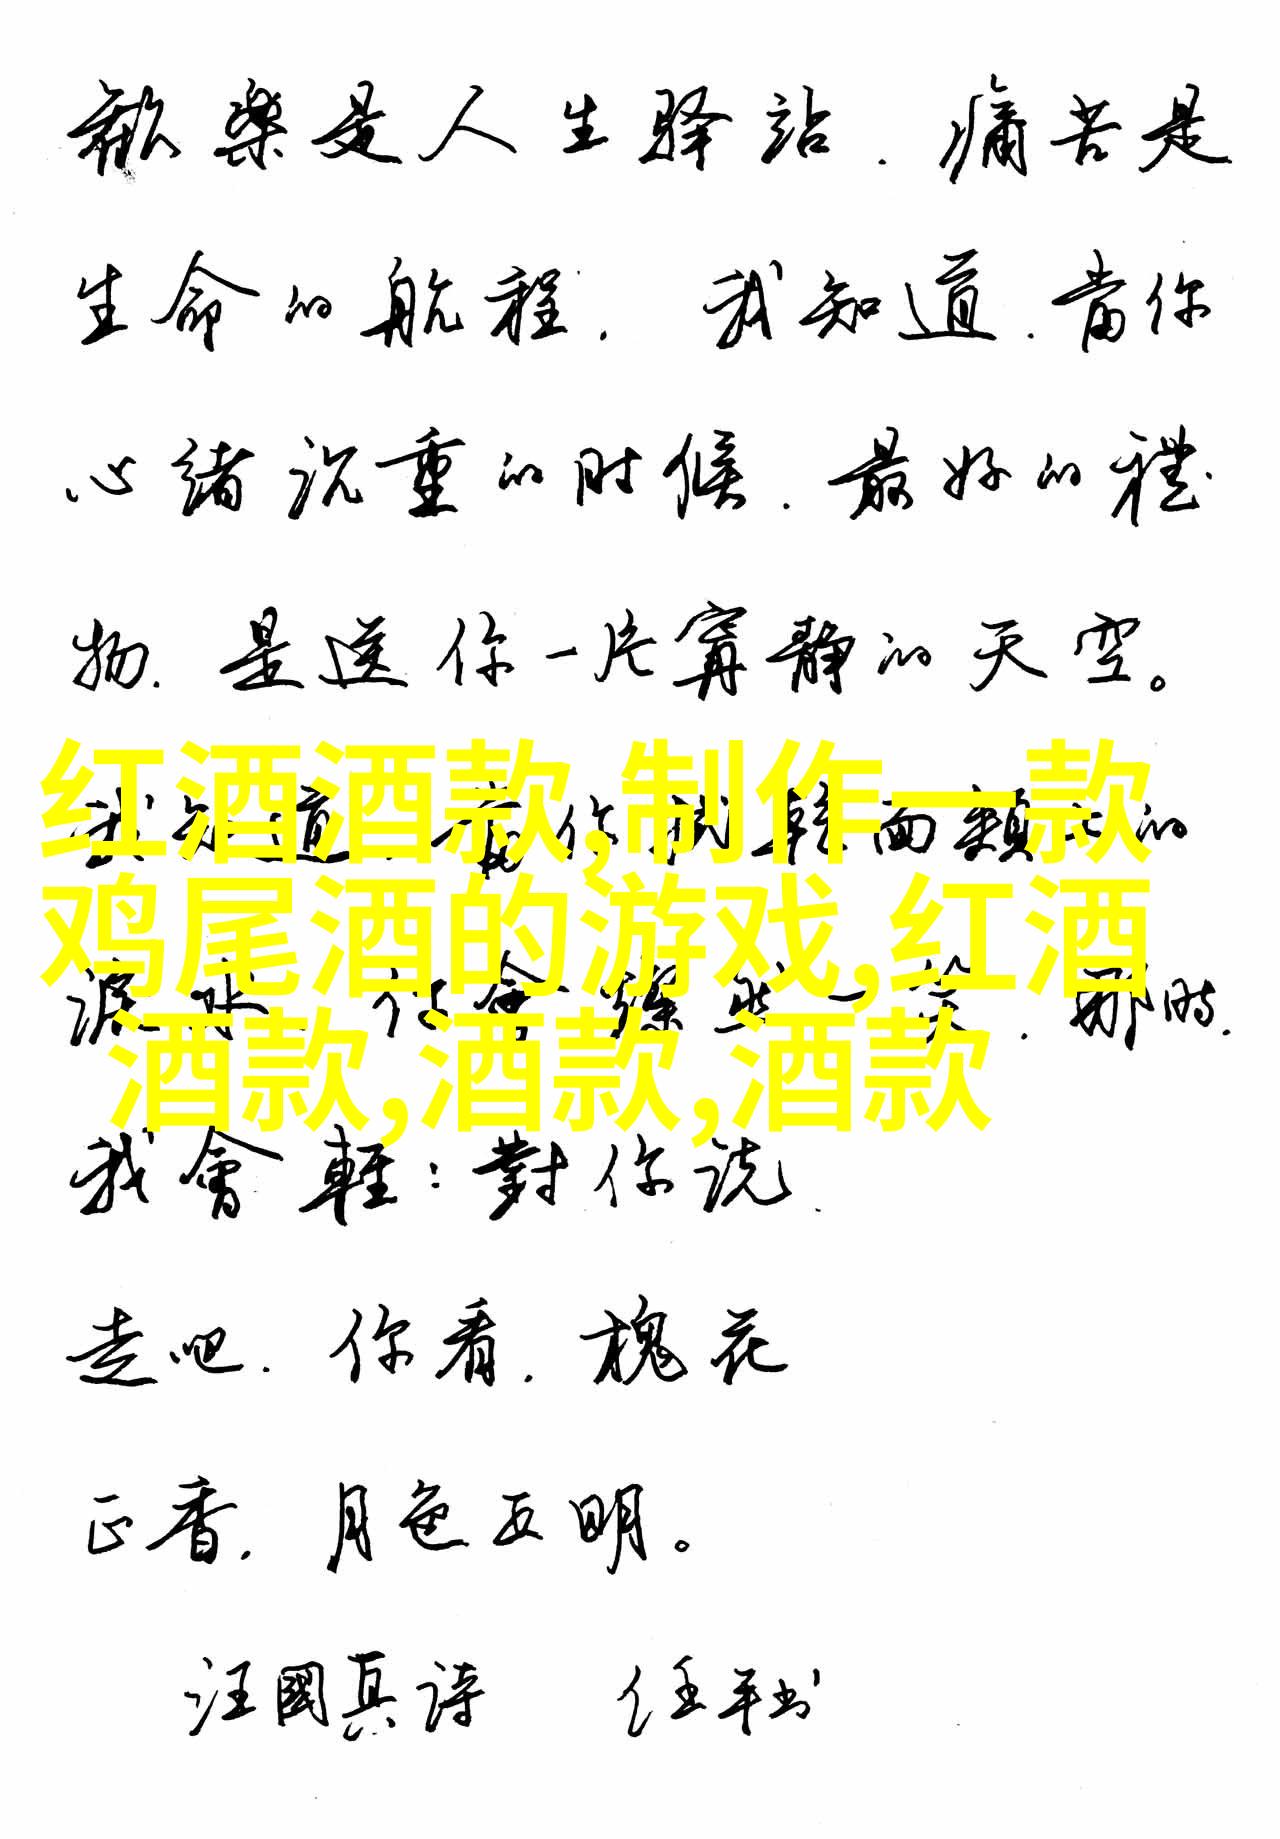 歡樂是人生驿站.痛苦是
生命的航程.我知道.當你
心绪沉重的时候.最好的禮
物.是送你一片寧静的天空。
我知道.當你 面頰上的
红酒酒款,制作一款
鸡尾酒的游戏,红酒
淚水 會 一笑.那時.
酒款,酒款,酒款
我會輕:對你说.
走吧.你看.槐花
正香.月色正明。
汪國真诗 任平书